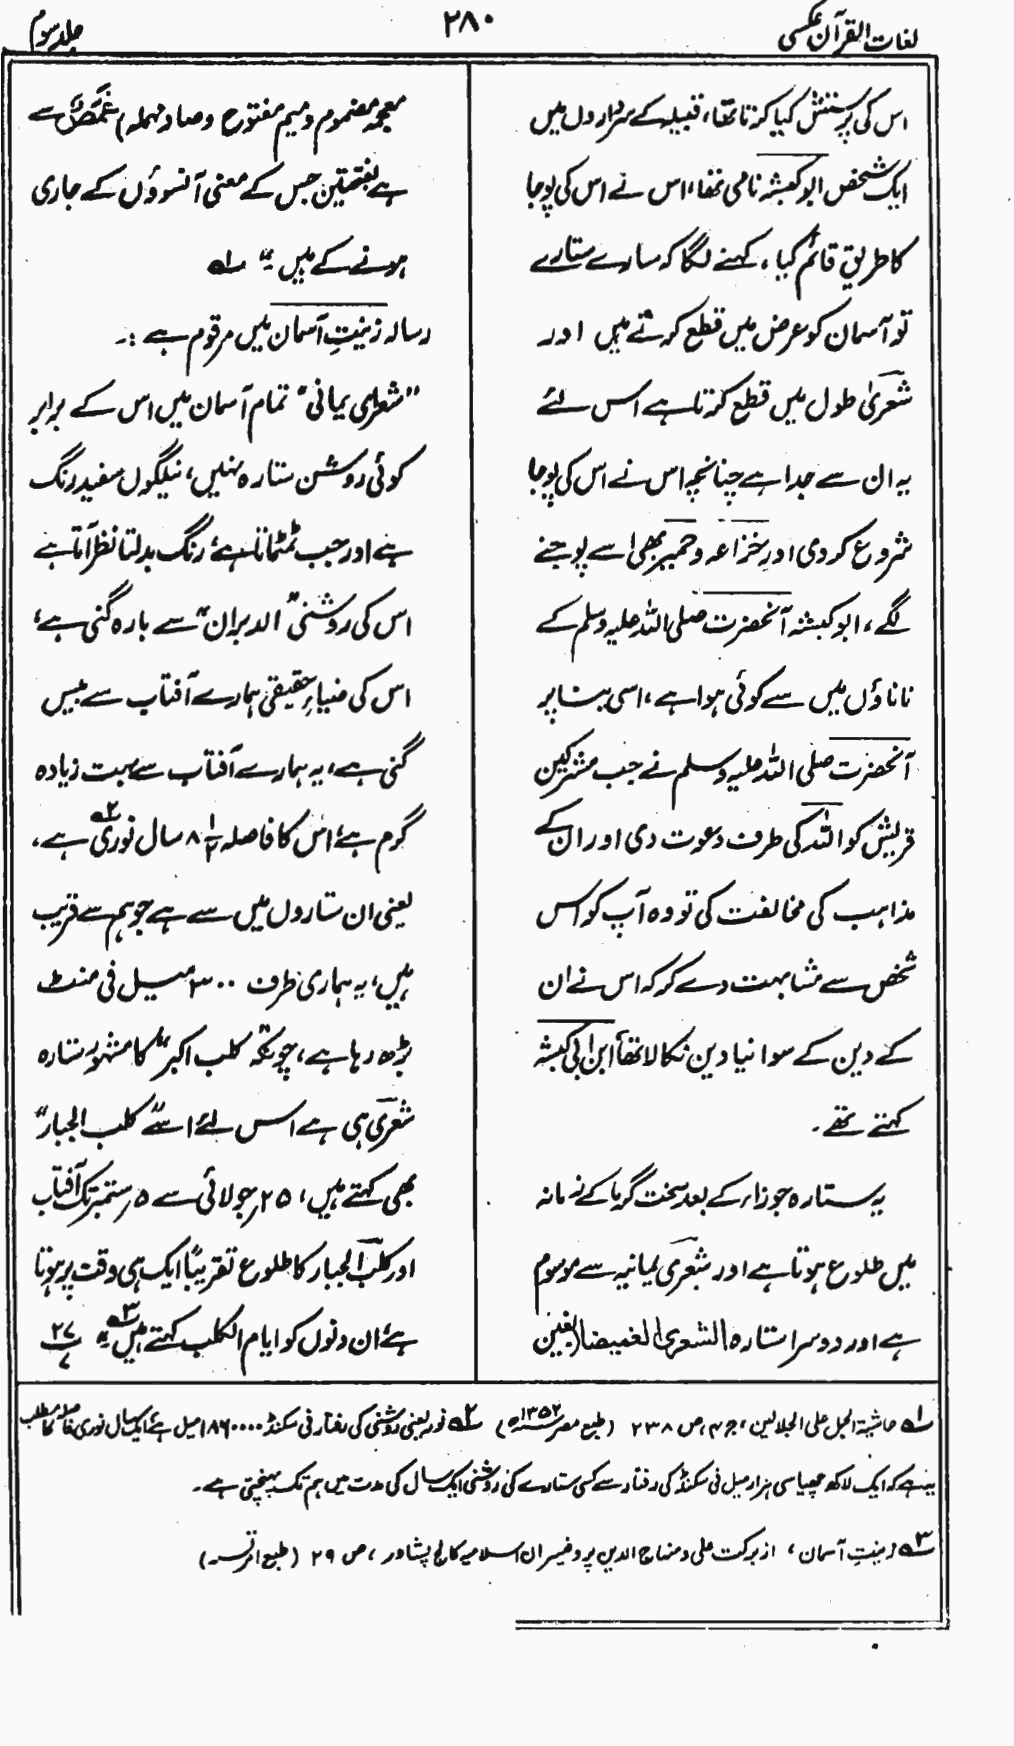 لغات القرآن عکسی
۲۸۰
جلد سوم
اس کی پرستش کیا کرتا تھا، قبیلہ کے سرداروں میں
ایک شخص ابو کبشہ نامی تھا، اس نے اس کی پوجا
کا طریق قائم کیا، کہنے لگا کہ سارے ستارے
تو آسمان کو عرض میں قطع کرتے ہیں اور
شعریٰ طول میں قطع کرتا ہے اس لئے
یہ ان سے جدا ہے چنانچہ اس نے اس کی پوجا
شروع کردی اور خزاعہ و حمیر بھی اسے پوجنے
لگے، ابو کبشہ آنحضرت صلی اللہ علیہ وسلم کے
ناناؤں میں سے کوئی ہوا ہے، اسی بنا پر
آنحضرت صلی اللہ علیہ وسلم نے جب مشرکین
قریش کو اللہ کی طرف دعوت دی اور ان کے
مذاہب کی مخالفت کی تو وہ آپ کو اس
شخص سے مشابہت دے کر کہ اس نے ان
کے دین کے سوا نیا دین نکالا تھا ابن ابی کبشہ
کہتے تھے۔
یہ ستارہ جوزاء کے بعد سخت گرما کے زمانہ
میں طلوع ہوتا ہے اور شعری یمانیہ سے موسوم
ہے اور دوسرا ستارہ الشعریٰ الغمیضا (بغین
معجمہ مضموم و میم مفتوح و صاد مہملہ) غَمَصٌ سے
ہے بفتحتین جس کے معنی آنسوؤں کے جاری
ہونے کے ہیں ؂۱
رسالہ زینتِ آسمان میں مرقوم ہے :۔
"شعرای یمانی" تمام آسمان میں اس کے برابر
کوئی روشن ستارہ نہیں، نیلگوں سفید رنگ
ہے اور جب ٹمٹماتا ہے، رنگ بدلتا نظر آتا ہے
اس کی روشنی "الدبران" سے بارہ گنی ہے،
اس کی ضیاءِ حقیقی ہمارے آفتاب سے بیس
گنی ہے، یہ ہمارے آفتاب سے بہت زیادہ
گرم ہے، اس کا فاصلہ ۸ ۱/۲ سال نوری ؂۲ ہے،
یعنی ان ستاروں میں سے ہے جو ہم سے قریب
ہیں، یہ ہماری طرف ۳۰۰ میل فی منٹ
بڑھ رہا ہے، چونکہ "کلب اکبر" کا مشہور ستارہ
شعری ہی ہے اس لئے اسے "کلب الجبار"
بھی کہتے ہیں، ۲۵ر جولائی سے ۵ر ستمبر تک آفتاب
اور کلب الجبار کا طلوع تقریباً ایک ہی وقت پر ہوتا
ہے، ان دنوں کو ایام الکلب کہتے ہیں ؂۳ ۲۷
؂۱ حاشیۃ الجمل علی الجلالین، ج ۴، ص ۲۳۸ (طبع مصر ۱۳۵۲ھ) ؂۲ نور یعنی روشنی کی رفتار فی سکنڈ ۱۸۶۰۰۰۰ میل ہے، ایک سال نوری فاصلہ کا مطلب
یہ ہے کہ ایک لاکھ چھیاسی ہزار میل فی سکنڈ کی رفتار سے کسی ستارے کی روشنی ایک سال کی مدت میں ہم تک پہنچتی ہے۔
؂۳ زینتِ آسمان، از برکت علی و منہاج الدین پروفیسران اسلامیہ کالج پشاور، ص ۲۹ (طبع امرتسر)